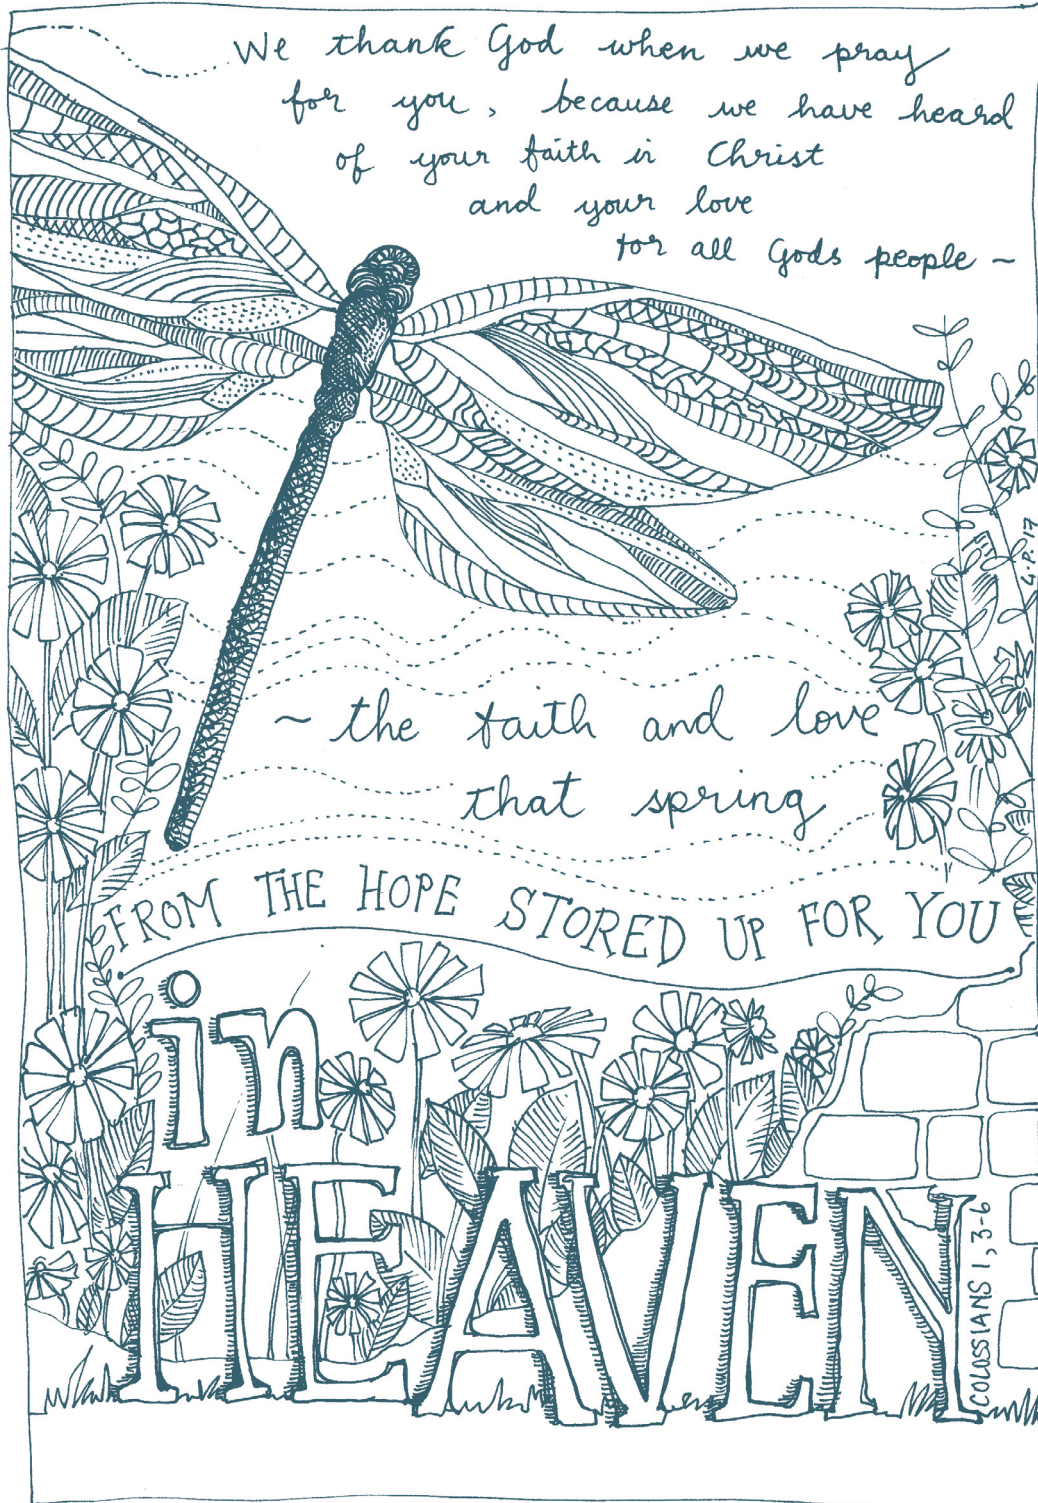 We thank God when we pray
for you, because we have heard
of your faith in Christ
and your love
for all Gods people ~
~ the faith and love
that spring
FROM THE HOPE STORED UP FOR YOU
in
HEAVEN
COLOSSIANS 1, 3-6
G.P. '17